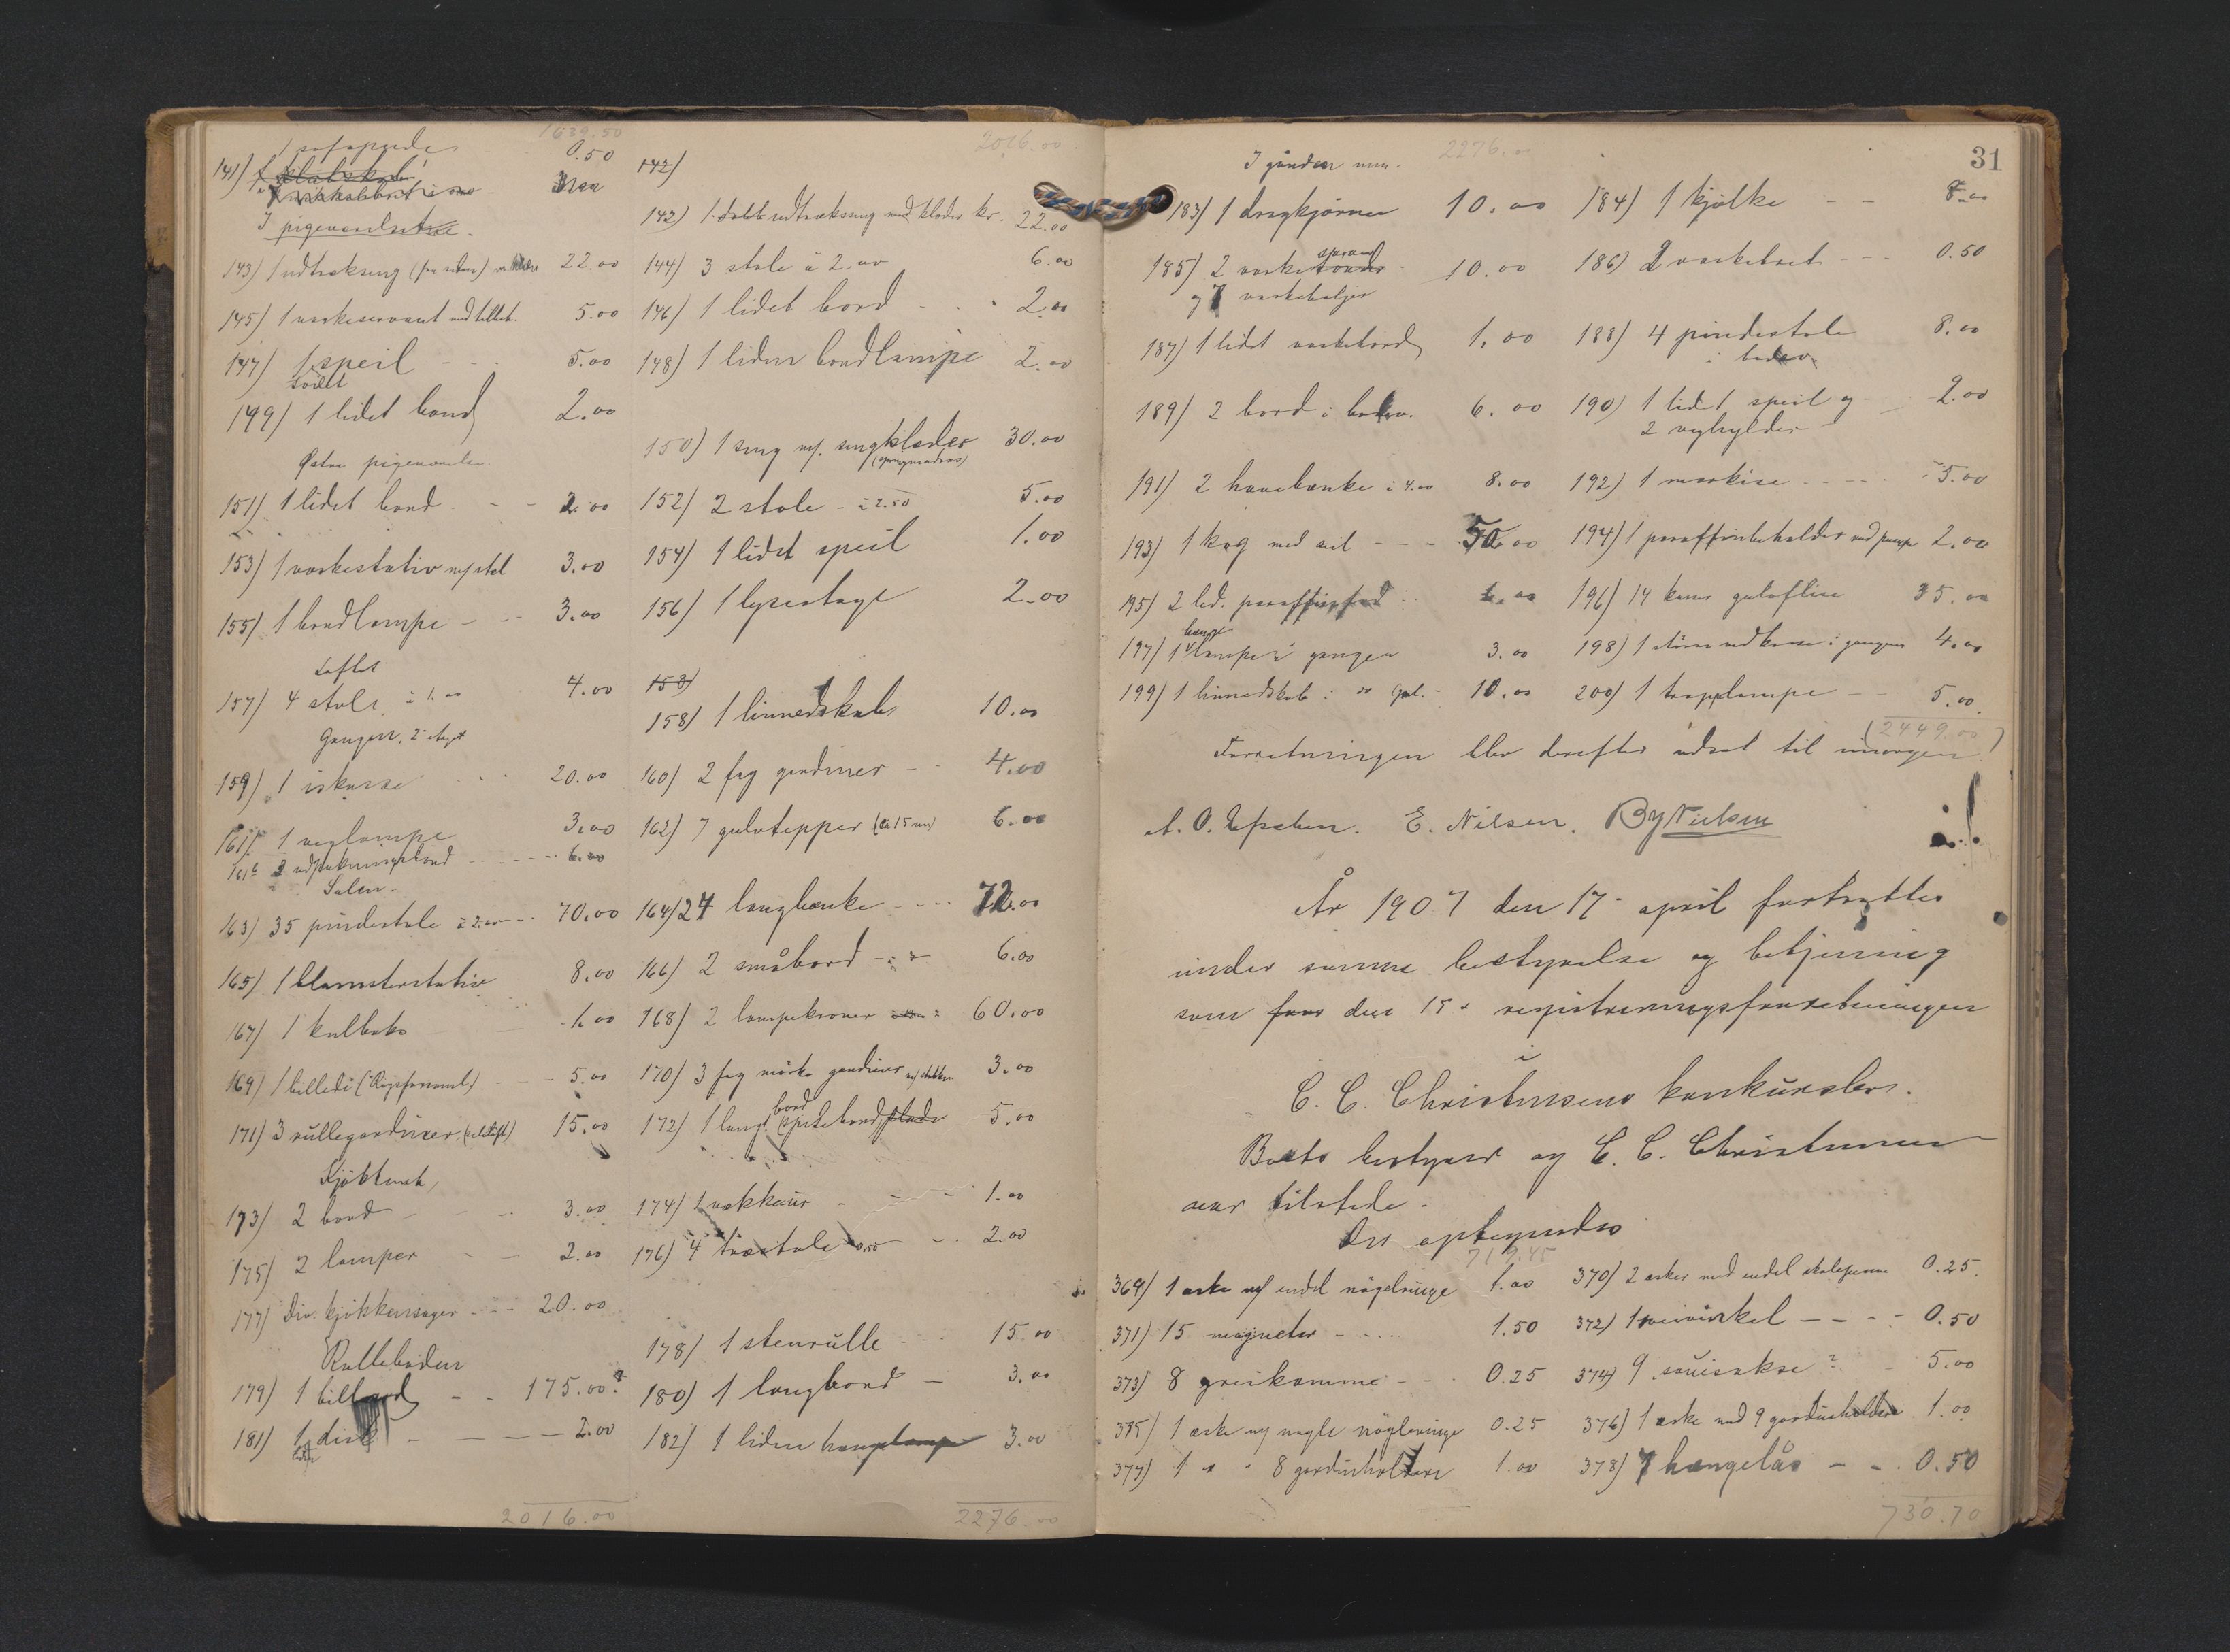 1639.50
1 sofapude 0.50
141)
I pigeværelset
143) 1 udtræksseng 22.00
145) 1 vaskeservant med toilet. 5.00
147) 1 speil 5.00
toilet
149) 1 lidet bord 2.00
Østre pigeværelse
151) 1 lidet bord 2.00
153) 1 vaskestativ m/ stel 3.00
155) 1 bordlampe 3.00
Loftet
157) 4 stole à 1.00 4.00
Gangen, 2 etage
159) 1 iskasse 20.00
161) 1 væglampe 3.00
161b 6.00
Salen.
163) 35 pindestole à 2.00 70.00
165) 1 blomsterstativ 8.00
167) 1 kulboks 1.00
169) 1 billede (Rigsforsaml) 5.00
171) 3 rullegardiner 15.00
Kjøkkenet
173) 2 bord 3.00
175) 2 lamper 2.00
177) Div. kjøkkensager 20.00
Rulleboden
179) 1 billard 175.00?
181) 1 disk 2.00
2016.00
2016.00
142)
142) 1 dobb. udtræksseng med klæder kr. 22.00
144) 3 stole à 2.00 6.00
146) 1 lidet bord 2.00
148) 1 liden bordlampe 2.00
150) 1 seng m/. sengklæder 30.00
(springmadras)
152) 2 stole à 2.50 5.00
154) 1 lidet speil 1.00
156) 1 lysestage 2.00
158)
158) 1 linnedskab 10.00
160) 2 fag gardiner 4.00
162) 7 gulvtepper 6.00
164) 24 langbænke 72.00
166) 2 småbord 6.00
168) 2 lampekroner 60.00
170) 3 fag mørke gardiner 3.00
172) 1 langt bord 5.00
174) 1 vækkeur 1.00
176) 4 træstole 0.50 2.00
178) 1 stenrulle 15.00
180) 1 langbord 3.00
182) 1 liden hængelampe 3.00
2276.00
31
I gården
2276.00
183) 1 dragkjærre 10.00 184) 1 kjælke 8.00
185) 2 vaske 10.00 186) 2 vaskebret 0.50
og 7 vaskebaljer
187) 1 lidet vaskebord 1.00 188) 4 pindestole 8.00
189) 2 bord i 6.00 190) 1 lidet speil og 2.00
2 veghylder
191) 2 havebænke à 4.00 8.00 192) 1 markise 5.00
193) 1 kag med seil 50.00 194) 1 paraffinbeholder med pumpe 2.00
195) 2 led. paraffinfad 196) 14 kasser gulvflise 35.00
hænge
197) 1 lampe i gangen 3.00 198) 1 større vedkasse i gangen 4.00
199) 1 linnedskab i 10.00 200) 1 trappelampe 5.00
(2449.00)
Forretningen blev derefter udsat til imorgen.
E. Nilsen. By Nielsen
År 1907 den 17- april fortsattes
under samme bestyrelse og betjening
som den 15 registreringsforretningen
i
C. C. Christensens konkursbo.
Boets bestyrer og C. C. Christensen
var tilstede.
Der optegnedes
719.45
369) 1 æske m/ endel nøgelringe 1.00 370) 2 æsker med endel 0.25
371) 15 magneter 1.50 372) 1 0.50
373) 8 greikamme 0.25 374) 9 sauesakse ? 5.00
375) 1 æske m/ nogle nøgleringe 0.25 376) 1 æske med 9 gardinholdere 1.00
377) 1 " " 8 gardinholdere 1.00 378) 7 hængelås 0.50
730.70